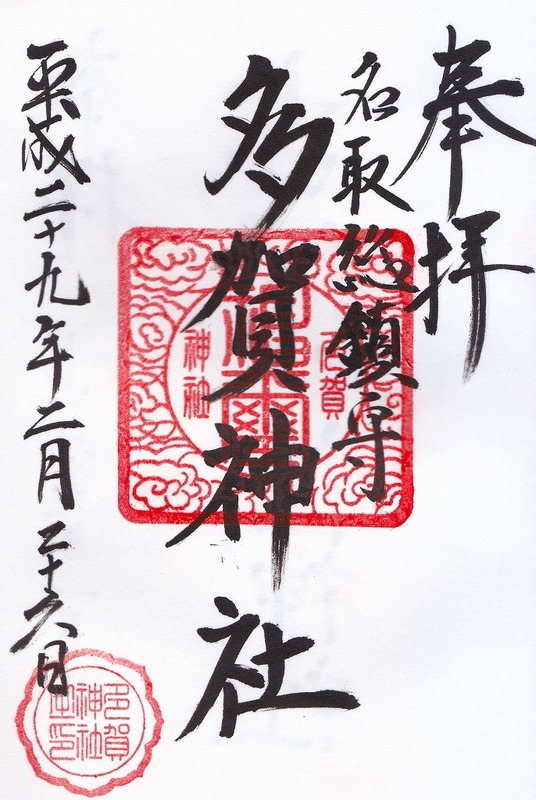 奉拝
名取総鎮守
多賀神社
平成二十九年二月二十六日
多賀
神社
多賀
神社
之印